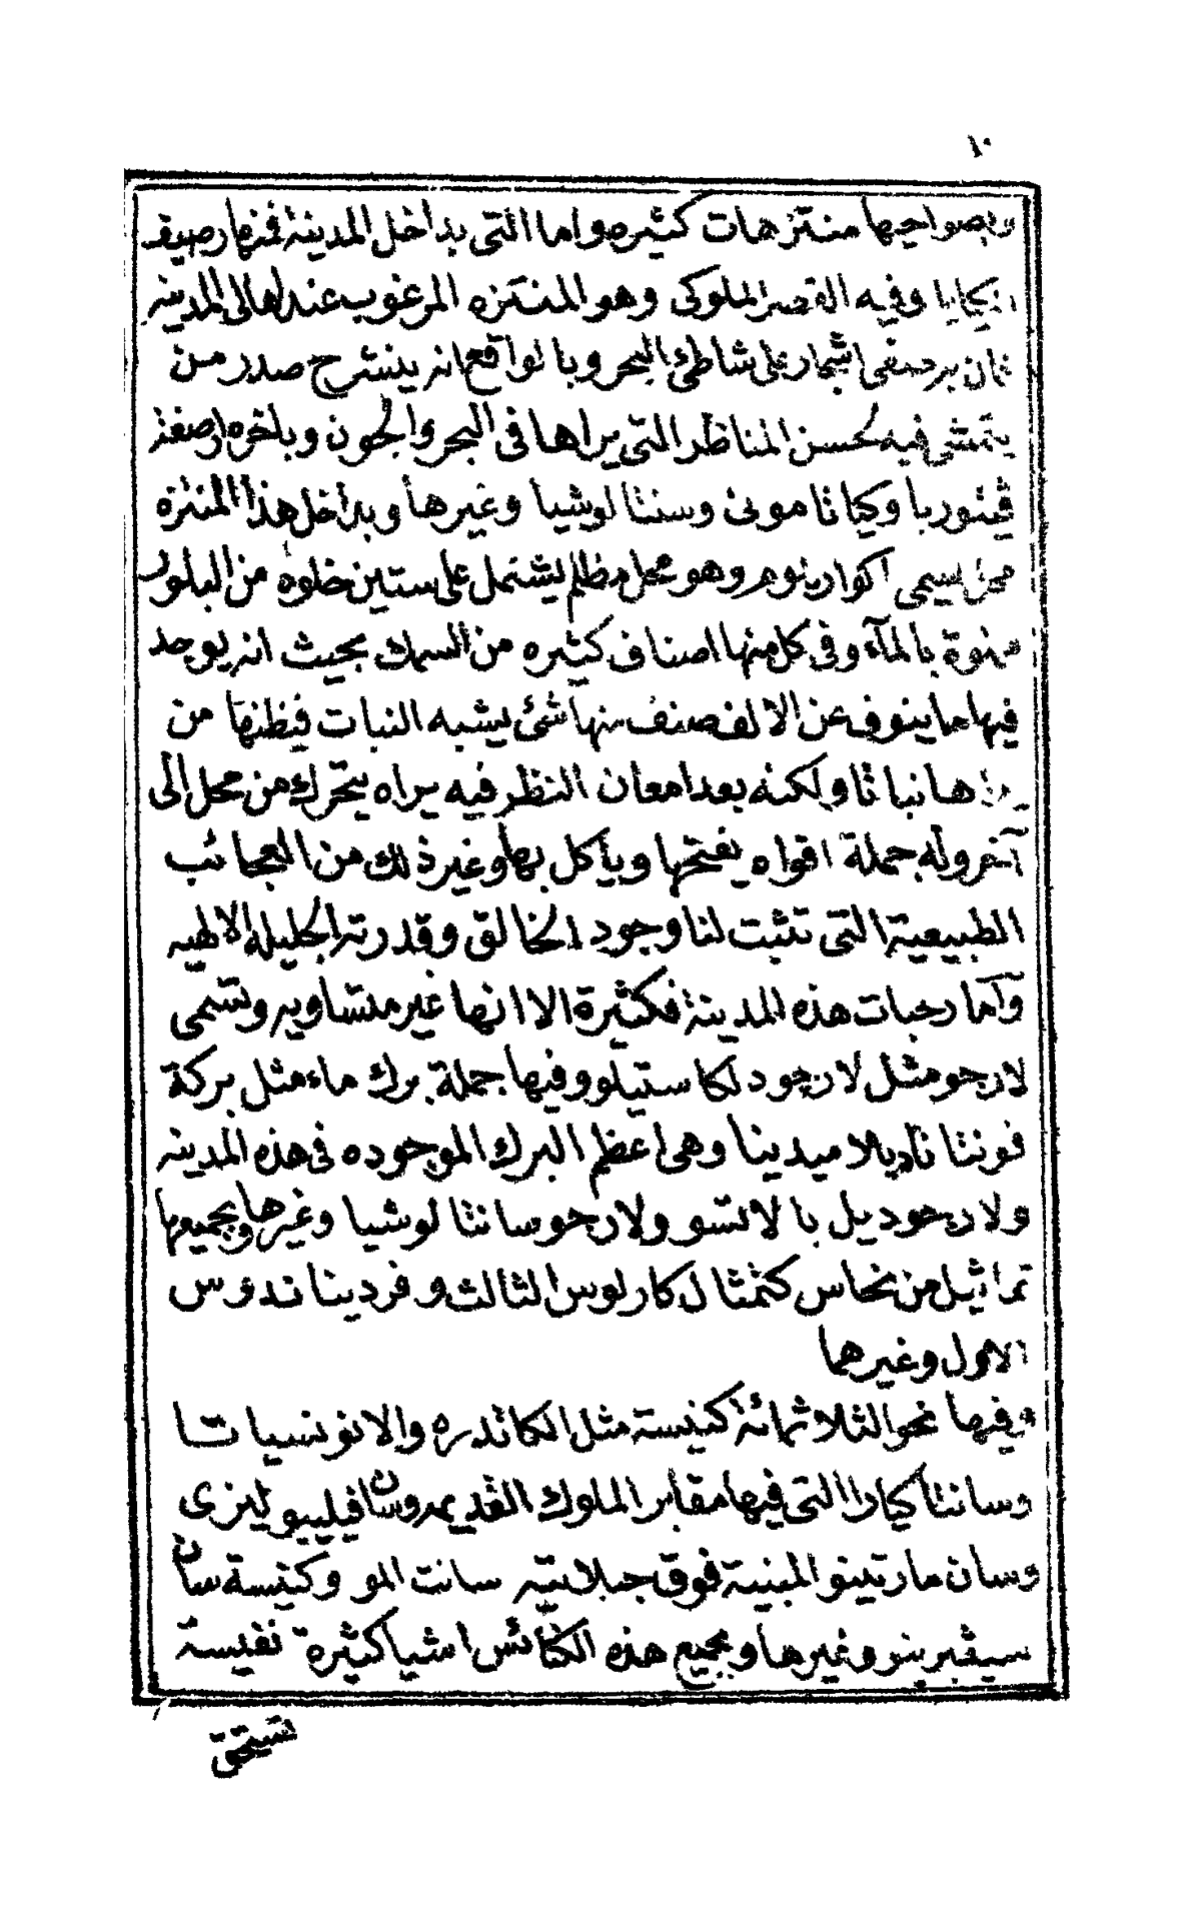 ١٠
وبضواحيها منتزهات كثيره واما التى بداخل المدينة فمنها رصيف
كيايا وفيه القصر الملوكى وهو المنتزه المرغوب عند اهالى المدينه
على شاطئ البحر وبالواقع انه ينشرح صدر من
يتمشى فيه لحسن المناظر التى يراها فى البحر والجون وباخره ارصفة
ڤيتوريا وكياتامونى وسنتا لوشيا وغيرها وبداخل هذا المنتزه
محل يسمى اكواريوم وهو محل مظلم يشتمل على ستين خلوه من البلور
مملوة بالمآء وفى كل منها اصناف كثيره من السمك بحيث انه يوجد
فيها ما ينوف عن الالف صنف منها شئ يشبه النباتات فيظنها من
يراها نباتا ولكنه بعد امعان النظر فيه يراه يتحرك من محل الى
آخر وله جملة افواه يفتحها ويأكل بها وغير ذلك من العجائب
الطبيعية التى تثبت لنا وجود الخالق وقدرته الجليله الالهيه
وآما رحبات هذه المدينة فكثيرة الا انها غير متساويه وتسمى
لارجو مثل لارجو دلكاستيلو وفيها جملة برك ماء مثل بركة
فونتانا ديلا ميدينا وهى اعظم البرك الموجوده فى هذه المدينه
ولارجو ديل بالاتسو ولارجو سانتا لوشيا وغيرها وبجميعها
تماثيل من نحاس كتمثال كارلوس الثالث وفرديناندوس
الاول وغيرهما
وفيها نحو الثلاثمائة كنيسة مثل الكاتدره والانونسياتا
وسانتا كيارا التى فيها مقابر الملوك القديمه وسان فيليبو ليزى
وسان مارتينو المبنية فوق جبل سانت المو وكنيسة سان
سيڤيرينو وغيرها وبجميع هذه الكنائس اشيا كثيرة نفيسة
تستحق